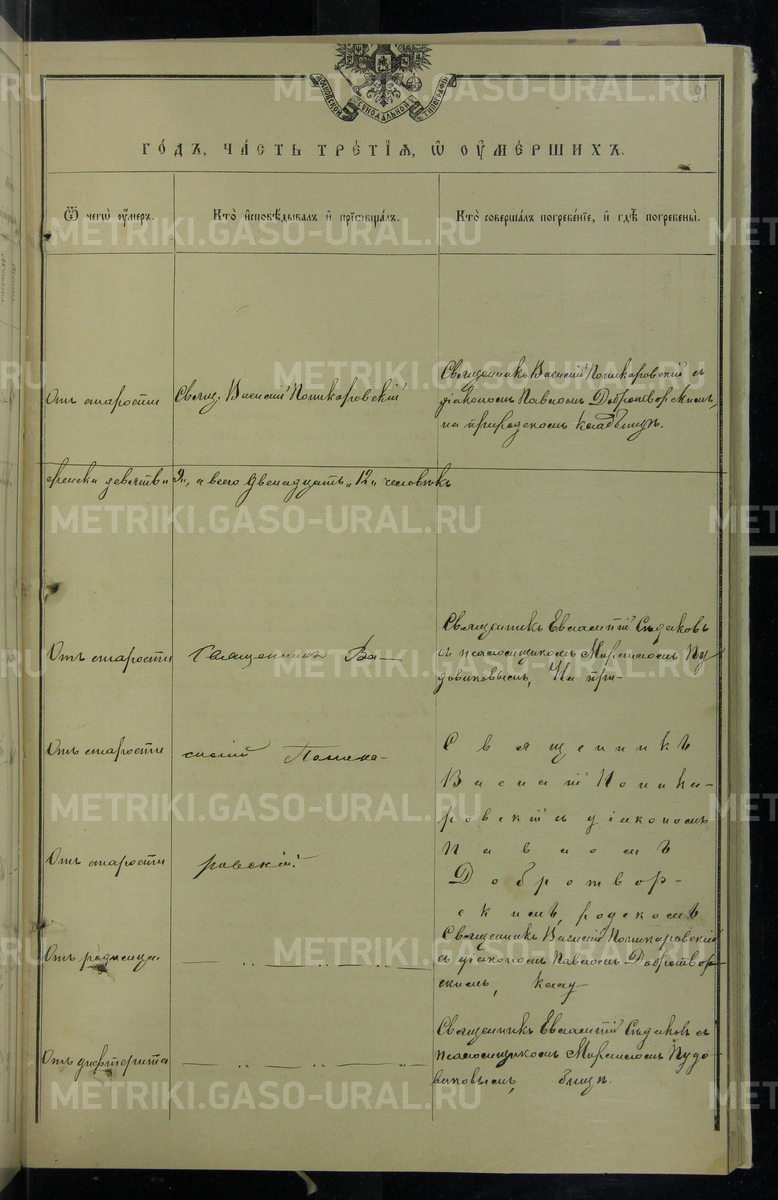 МОСКОВСКОЙ СѴНОДАЛЬНОЙ ТИПОГРАФІИ
91
ГО́ДЪ, ЧА́СТЬ ТРЕ́ТІѦ, Ѡ҆ ОУ҆МЕ́РШИХЪ.
Ѿ чегѡ̀ оу҆́меръ.
Кто̀ и҆сповѣ́дывалъ и҆ прїѡбща́лъ.
Кто̀ соверша́лъ погребе́нїе, и҆ гдѣ̀ погребены̀.
Отъ старости
Свящ. Василій Поликаровскій
Священникъ Василій Поликаровскій съ
діакономъ Павломъ Добротворскимъ,
на приходскомъ кладбищѣ.
женска девять „9„, а всего двенадцать „12„ человѣкъ
Отъ старости
Священникъ Ва-
Священникъ Евлампій Сѣдаковъ
съ псаломщикомъ Мирономъ Пу
довиковымъ, На при-
Отъ старости
силій Полика-
Священникъ
Василій Полика-
ровскій съ діакономъ
Павломъ
Добротвор-
скимъ, ходскомъ
Отъ старости
ровскій.
Отъ родимца.
— „ — „ — „ —
Священникъ Василій Поликаровскій
съ діакономъ Павломъ Добротвор
скимъ, клад-
Отъ дифтерита
— „ — „ — „ —
Священникъ Евлампій Сѣдаковъ съ
псаломщикомъ Мирономъ Пудо
виковымъ, бищѣ.
METRIKI.GASO-URAL.RU